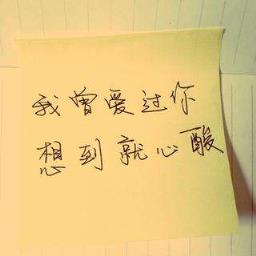 我曾爱过你
想到就心酸